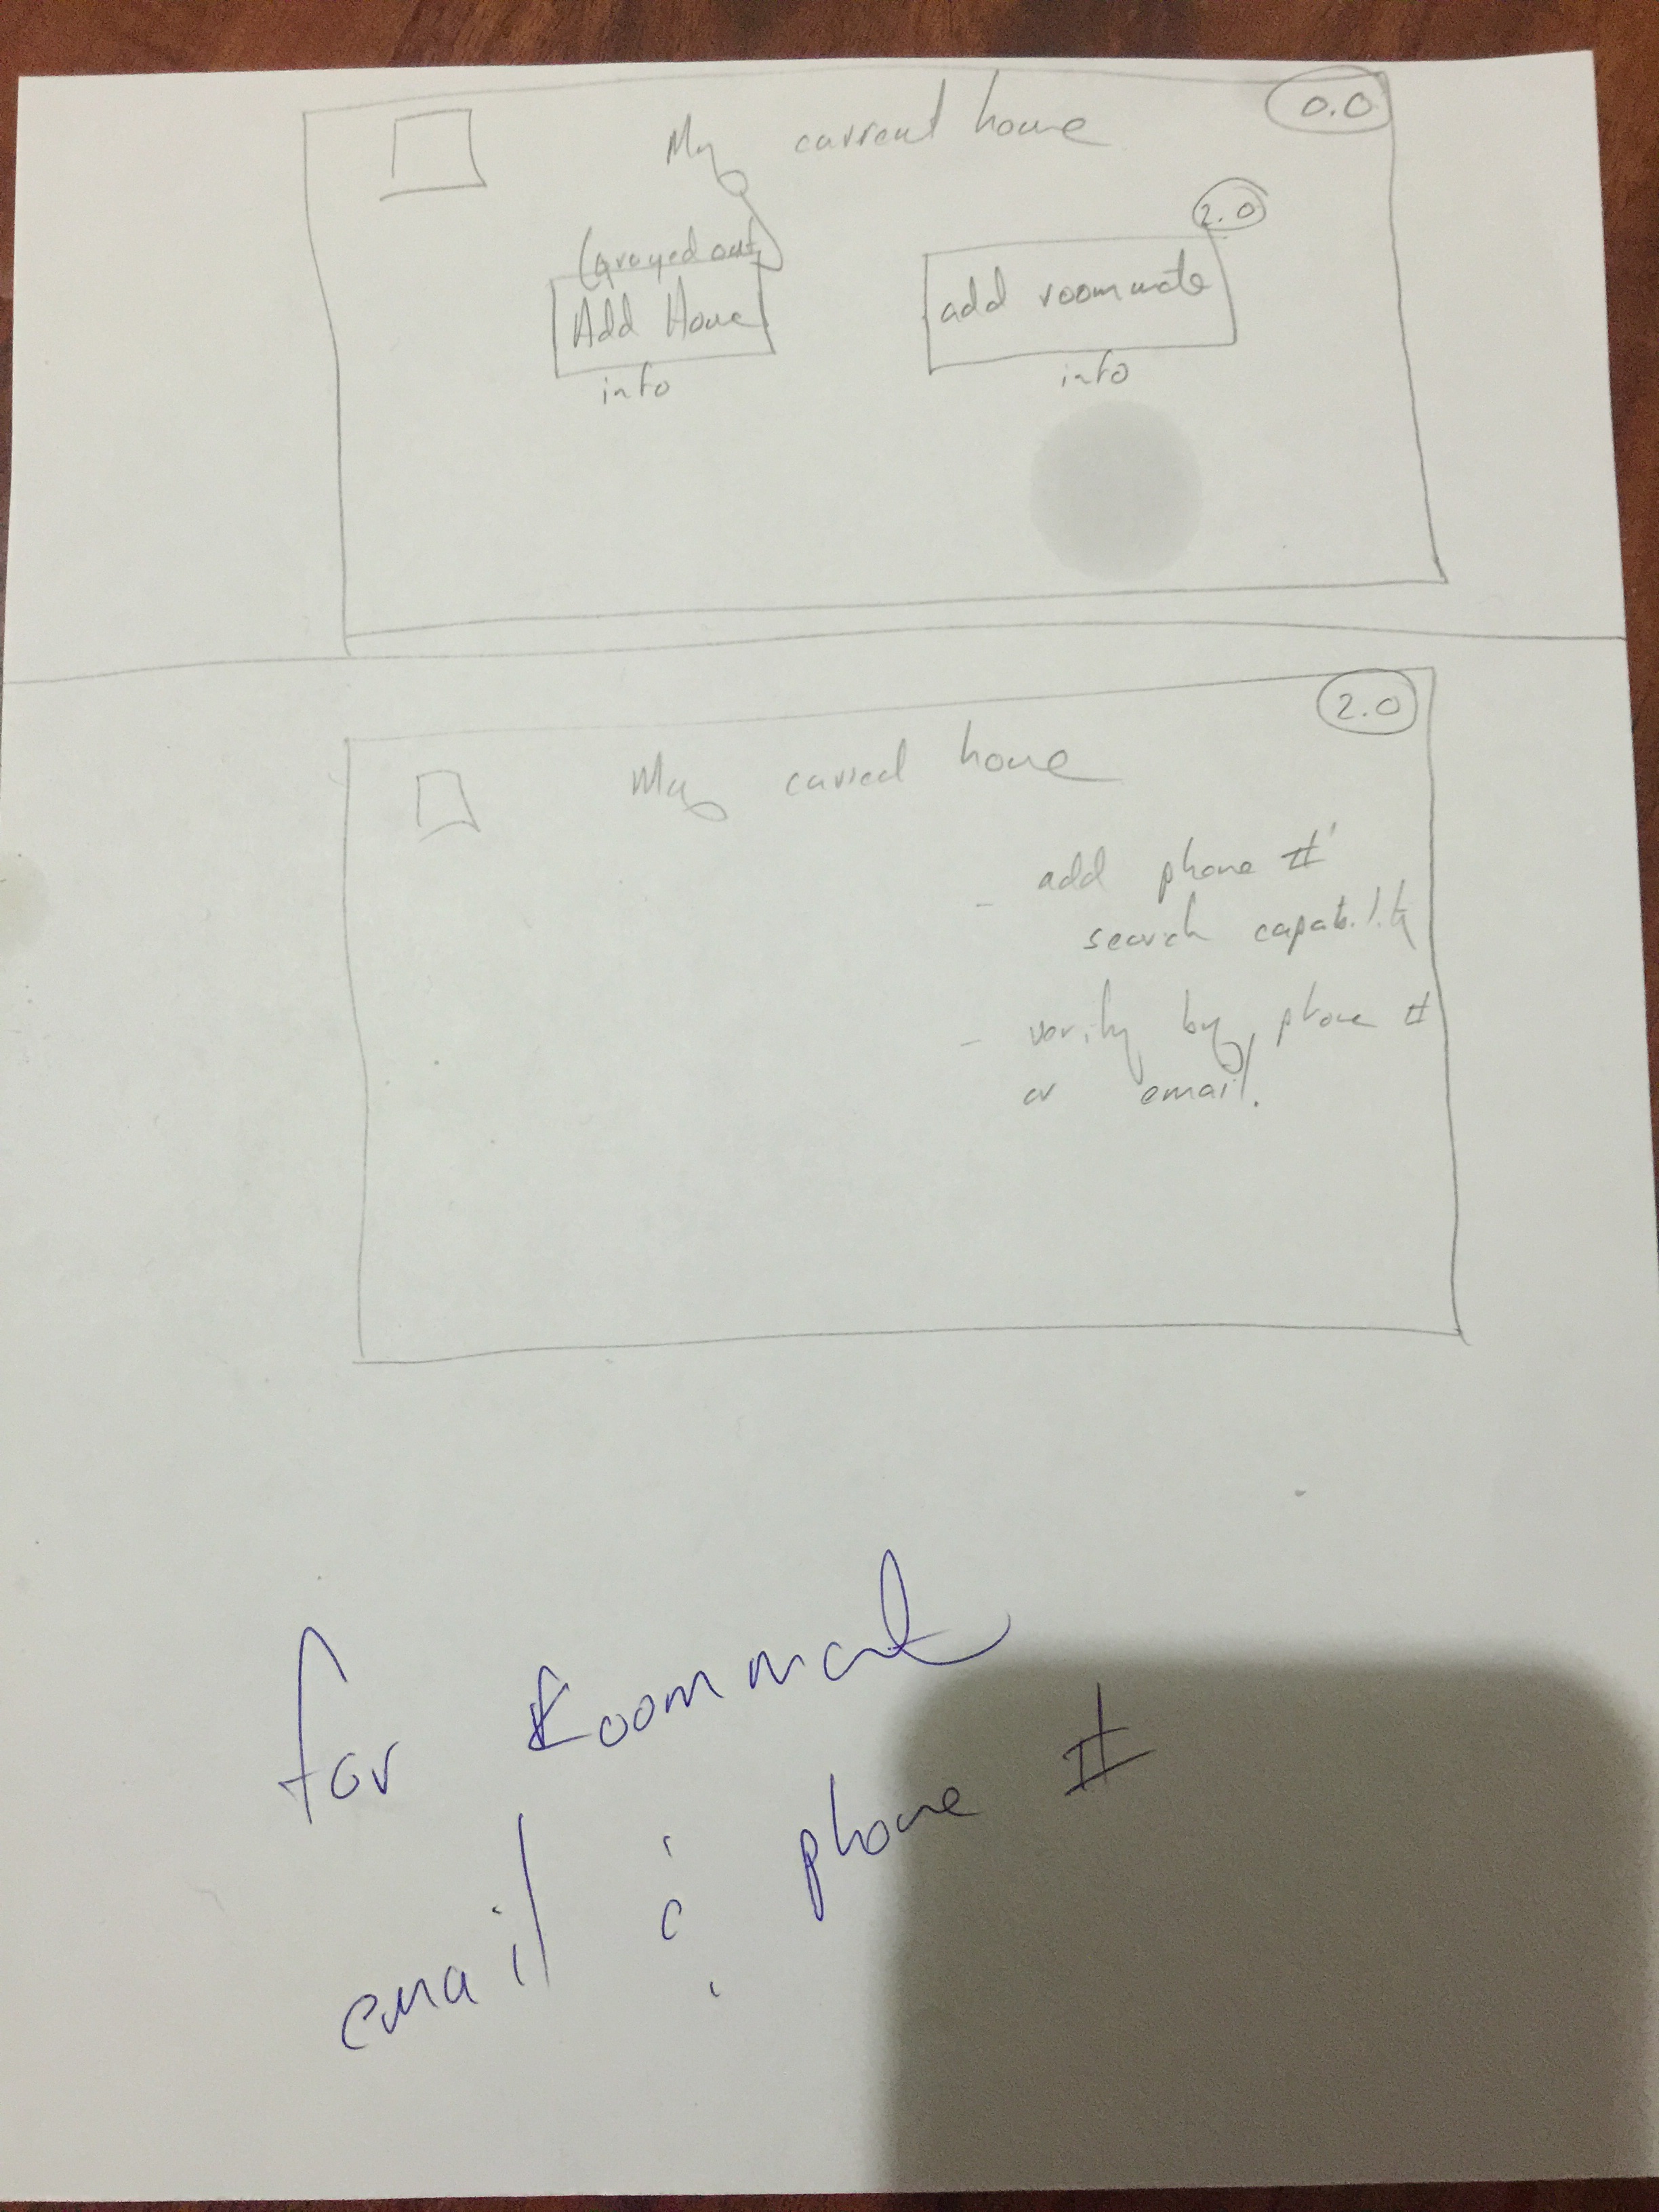 My current home
0.0
2.0
(Grayed out)
Add Home
add roommate
info
info
2.0
My current home
- add phone #
search capability
- verify by phone #
or email.
for Roommate
email & phone #